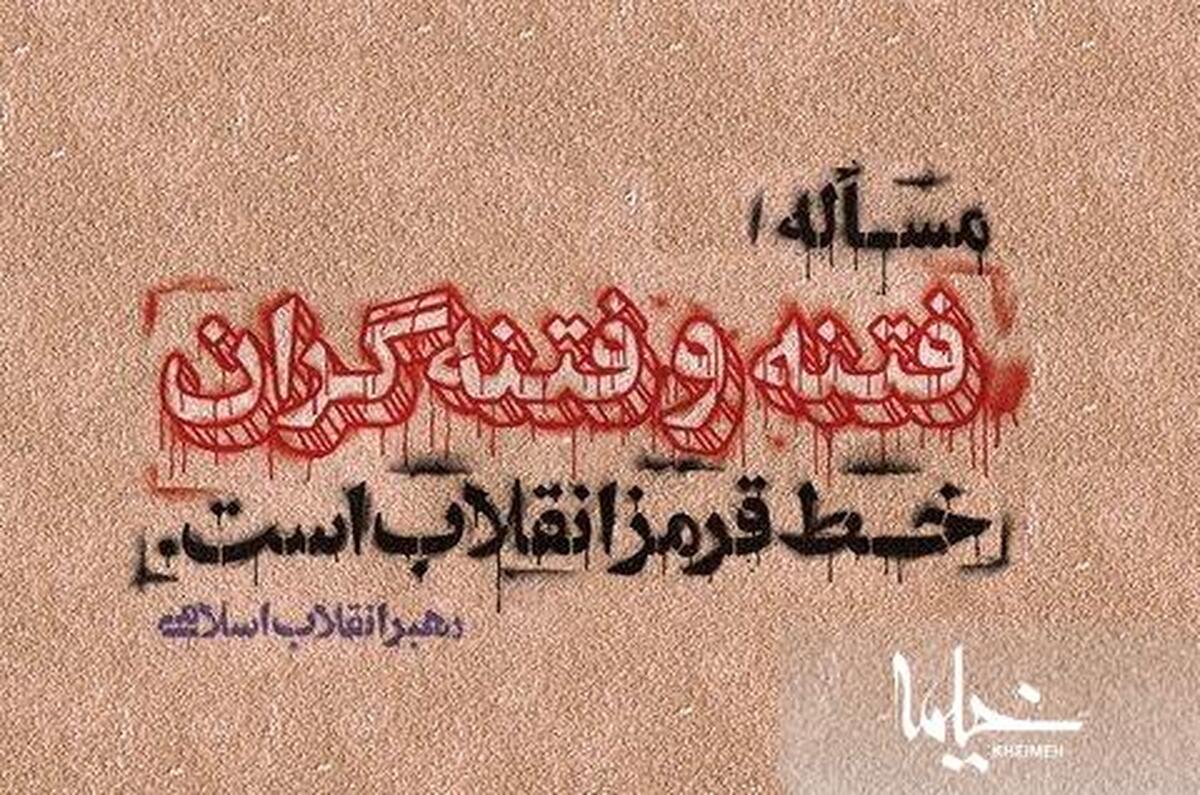 مسأله /
فتنه و فتنه گران
خط قرمز انقلاب است.
رهبر انقلاب اسلامی
KHEIMEH